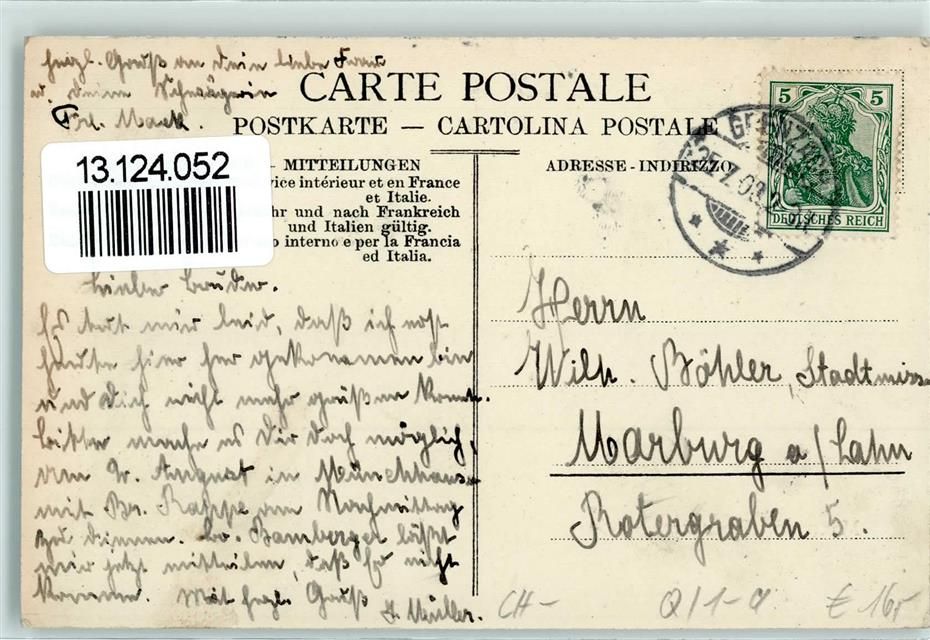 herzl. Gruß an Dein liebe Frau
u. Deine Schwägerin
Frl. Mack.
CARTE POSTALE
POSTKARTE — CARTOLINA POSTALE
13.124.052
- MITTEILUNGEN
vice intérieur et en France
et Italie.
hr und nach Frankreich
und Italien gültig.
o interno e per la Francia
ed Italia.
ADRESSE - INDIRIZZO
5 5
DEUTSCHES REICH
Lieber Bruder.
Es tut mir leid, daß ich erst
heute hier her gekommen bin
und Dich nicht mehr grüßen konnte.
Bitte mache es Dir doch möglich,
am 2. August in Münchhausen
mit Br. Rappe am Nachmittag
zu dienen. Br. Bamberger läßt
mir jetzt mitteilen, daß Er nicht
komme. Mit herzl. Gruß
J. Müller.
Herrn
Wilh. Böhler, Stadtmiss
Marburg a/Lahn
Rotergraben 5.
CH-
Q/1-9
€ 16,-